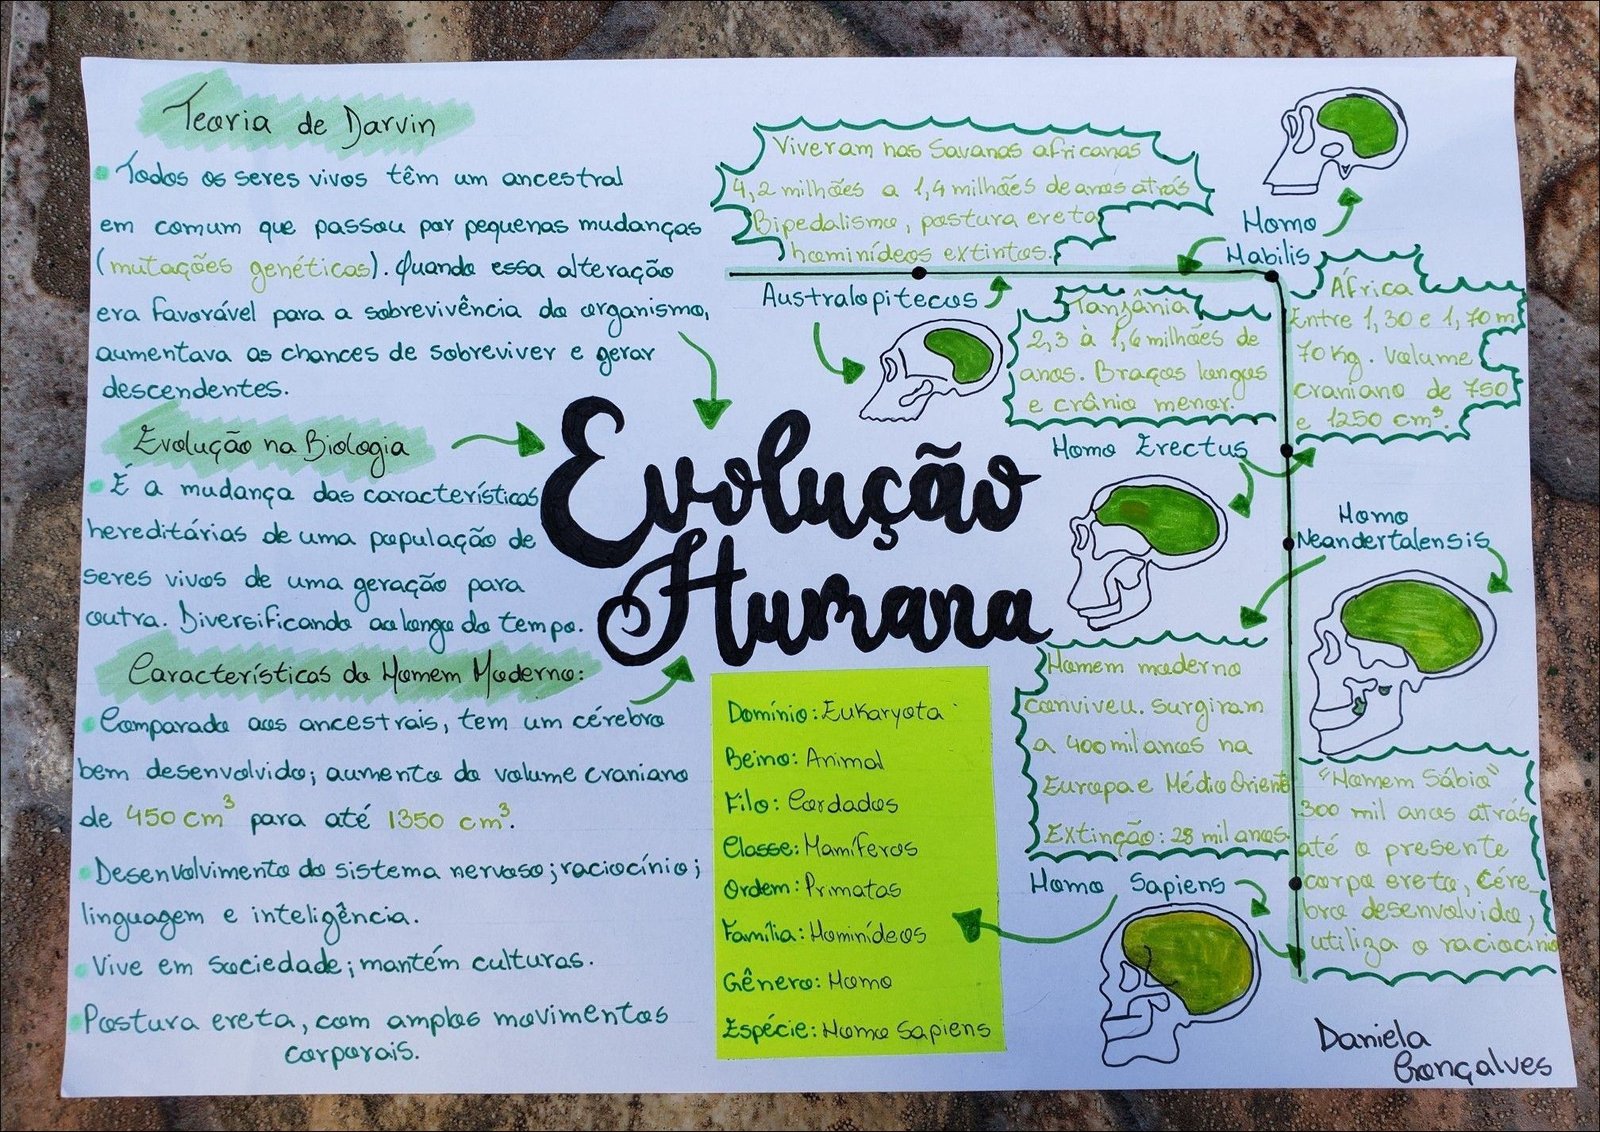 Teoria de Darvin
• Todos os seres vivos têm um ancestral
em comum que passou por pequenas mudanças
(mutações genéticas). Quando essa alteração
era favorável para a sobrevivência do organismo,
aumentava as chances de sobreviver e gerar
descendentes.
Evolução na Biologia
• É a mudança das características
hereditárias de uma população de
seres vivos de uma geração para
outra. Diversificando ao longo do tempo.
Características do Homem Moderno:
• Comparado aos ancestrais, tem um cérebro
bem desenvolvido; aumento do volume craniano
de 450 cm³ para até 1350 cm³.
• Desenvolvimento do sistema nervoso; raciocínio;
linguagem e inteligência.
• Vive em sociedade; mantém culturas.
• Postura ereta, com amplos movimentos
corporais.
Evolução
Humana
Domínio: Eukaryota
Reino: Animal
Filo: Cordados
Classe: Mamíferos
Ordem: Primatas
Família: Hominídeos
Gênero: Homo
Espécie: Homo Sapiens
Viveram nas Savanas africanas
4,2 milhões a 1,4 milhões de anos atrás
Bipedalismo, postura ereta
hominídeos extintos.
Australopitecos
Homo
Habilis
Tanzânia
2,3 à 1,6 milhões de
anos. Braços longos
e crânio menor.
África
Entre 1,30 e 1,70 m
70 Kg. Volume
craniano de 750
e 1250 cm³.
Homo Erectus
Homo
Neandertalensis
Homem moderno
conviveu. Surgiram
a 400 mil anos na
Europa e Médio Oriente
Extinção: 28 mil anos
Homo Sapiens
"Homem Sábio"
300 mil anos atrás
até o presente
corpo ereto, cére_
bro desenvolvido,
utiliza o raciocínio
Daniela
Gonçalves